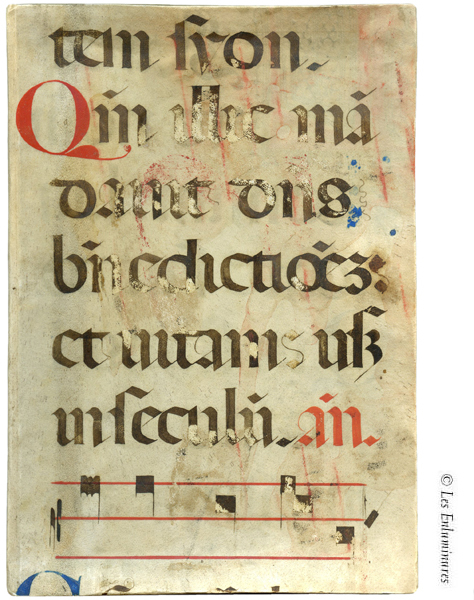 tem syon.
Qm̄ illic mā
dauit dn̄s
bn̄edictiōez:
et uitam usqꝫ
in seculū. an̄.
© Les Enluminures